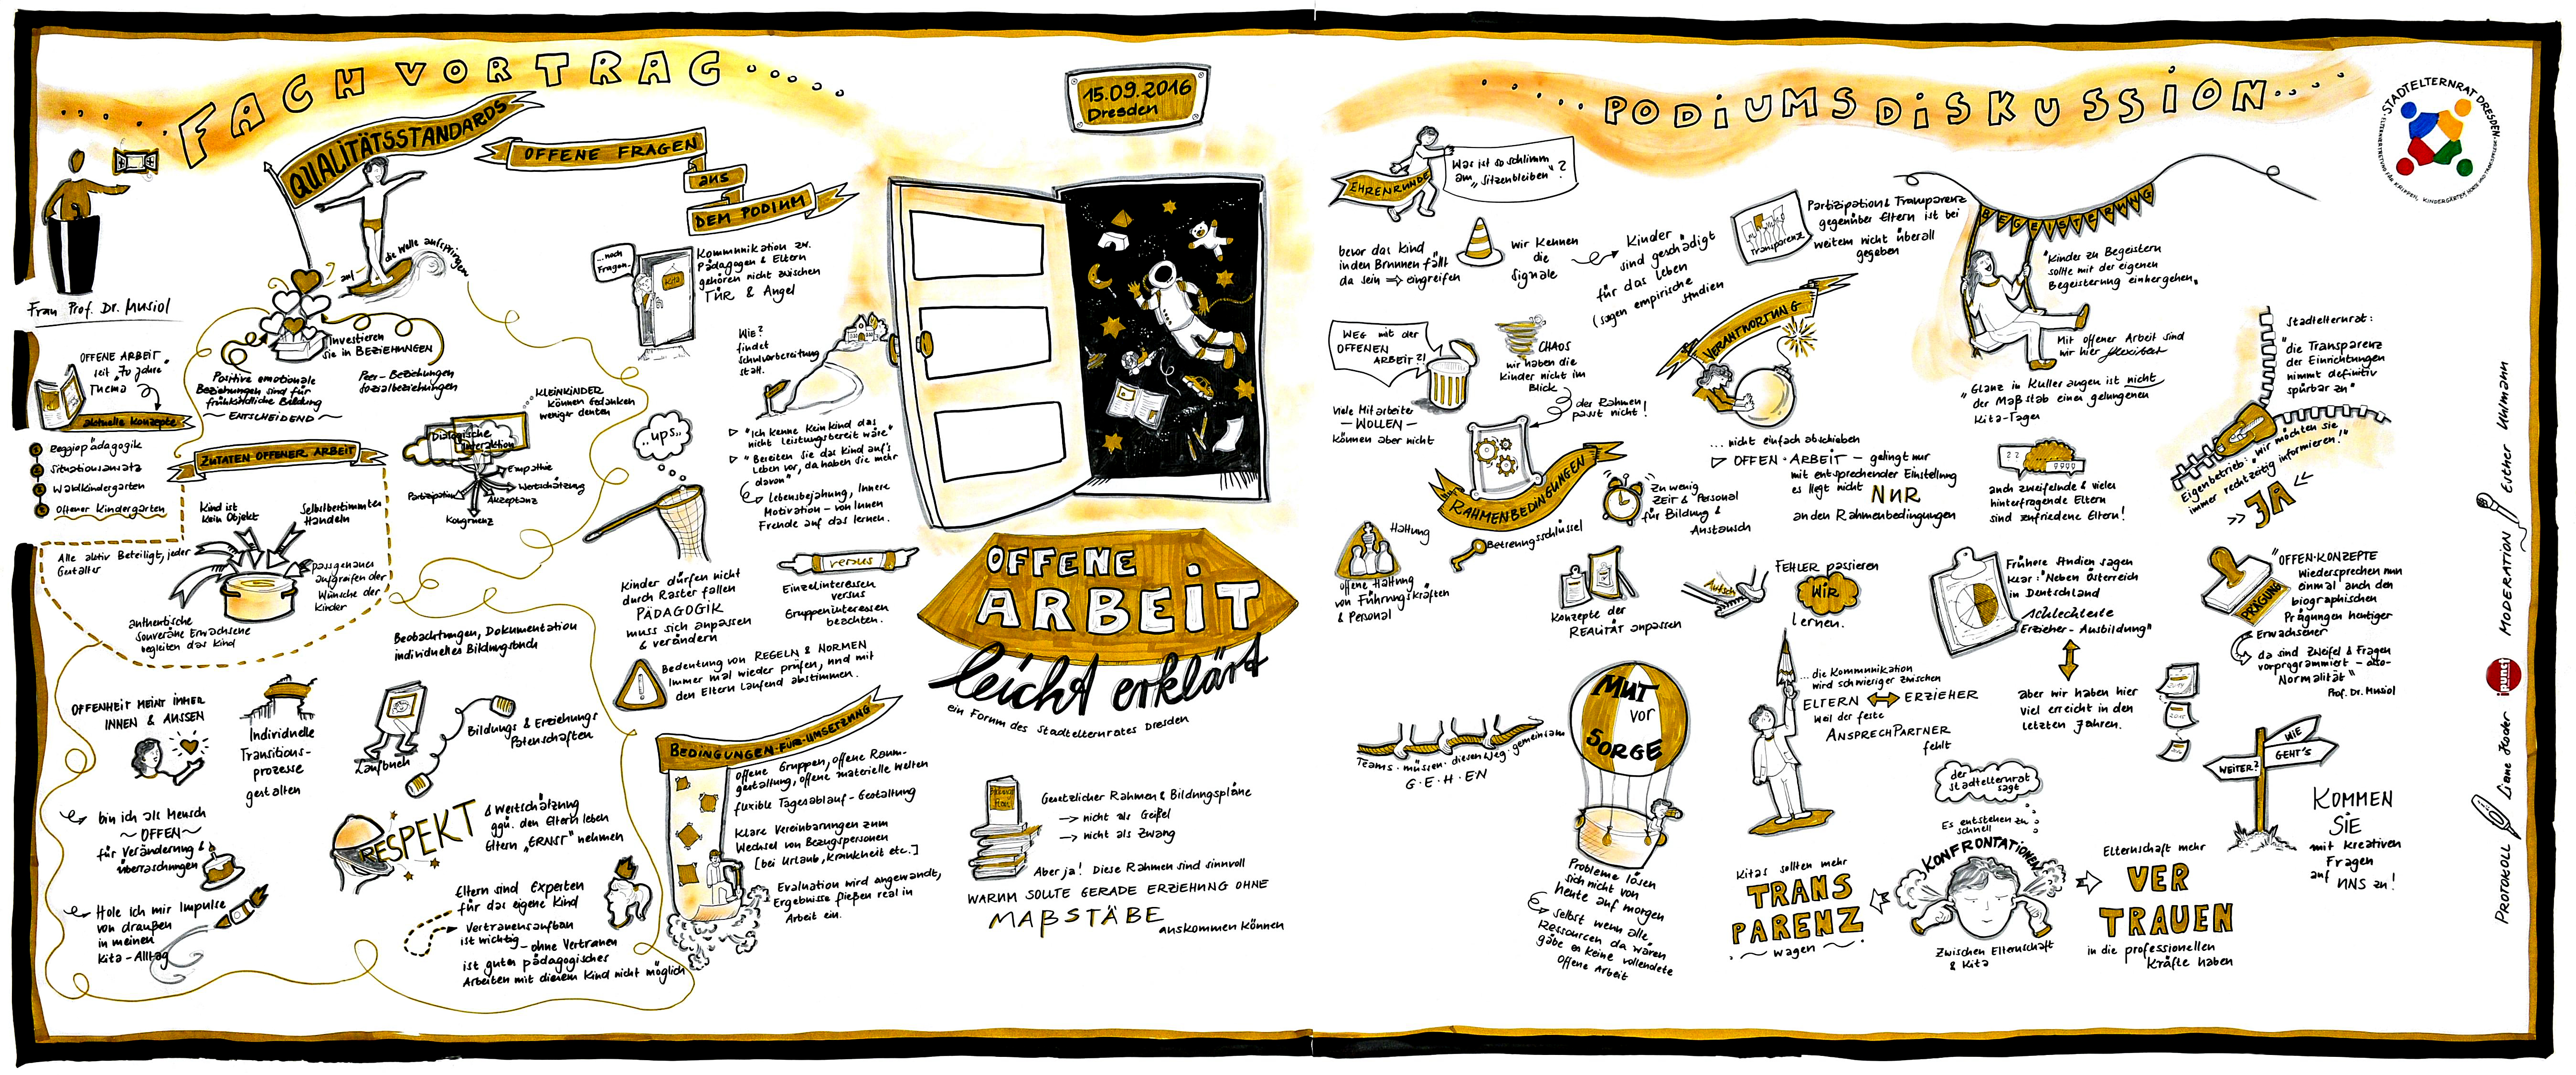 FACHVORTRAG....
QUALITÄTSSTANDARDS
auf die Welle aufspringen
Frau Prof. Dr. Musiol
OFFENE ARBEIT
seit "70 Jahre"
Thema
aktuelle Konzepte
Reggiopädagogik
Situationsansatz
Waldkindergarten
Offener Kindergarten
Investieren
Sie in BEZIEHUNGEN
Positive emotionale
Beziehungen sind für
frühkindliche Bildung
~ ENTSCHEIDEND ~
Peer-Beziehungen
Sozialbeziehungen
ZUTATEN OFFENER ARBEIT
Kind ist
kein Objekt
Selbstbestimmtes
Handeln
Alle aktiv Beteiligt, jeder
Gestalter
passgenaues
aufgreifen der
Wünsche der
Kinder
authentische
souveräne Erwachsene
begleiten das Kind
KLEINKINDER
können Gedanken
weniger deuten
Dialogische
Interaktion
Empathie
Wertschätzung
Akzeptanz
Kongruenz
Partizipation
Beobachtungen, Dokumentation
individuelles Bildungsbuch
OFFENHEIT MEINT IMMER
INNEN & AUSSEN
Individuelle
Transitions-
prozesse
gestalten
Laufbuch
Bildungs & Erziehungs
Patenschaften
bin ich als Mensch
~ OFFEN ~
für Veränderung &
Überraschungen
Hole Ich mir Impulse
von draußen
in meinen
Kita-Alltag
RESPEKT
& Wertschätzung
ggü. den Eltern leben
Eltern "ERNST" nehmen
Eltern sind Experten
für das eigene Kind
Vertrauensaufbau
ist wichtig - ohne Vertrauen
ist gutes pädagogisches
Arbeiten mit diesem Kind nicht möglich
OFFENE FRAGEN
aus
DEM PODIUM
...noch
Fragen..
Kita
Kommunikation zw.
Pädagogen & Eltern
gehören nicht zwischen
TÜR & Angel
WIE?
findet
Schulvorbereitung
statt.
"Ich kenne kein Kind das
nicht leistungsbereit wäre"
"Bereiten Sie das Kind auf's
Leben vor, da haben sie mehr
davon"
Lebensbejahung, Innere
Motivation - von Innen
Freude auf das lernen.
..ups..
Kinder dürfen nicht
durch Raster fallen
PÄDAGOGIK
muss sich anpassen
& verändern
versus
Einzelinteressen
versus
Gruppeninteressen
beachten.
Bedeutung von REGELN & NORMEN
Immer mal wieder prüfen, und mit
den Eltern laufend abstimmen.
BEDINGUNGEN FÜR UMSETZUNG
offene Gruppen, offene Raum-
gestaltung, offene materielle Welten
fluxible Tagesablauf-Gestaltung
Klare Vereinbarungen zum
Wechsel von Bezugspersonen
[bei Urlaub, Krankheit etc.]
Evaluation wird angewandt,
Ergebnisse fließen real in
Arbeit ein.
15.09.2016
Dresden
OFFENE
ARBEIT
leicht erklärt
ein Forum des Stadtelternrates Dresden
Gesetzlicher Rahmen & Bildungspläne
→ nicht als Geißel
→ nicht als Zwang
Aber ja! Diese Rahmen sind sinnvoll
WARUM SOLLTE GERADE ERZIEHUNG OHNE
MAßSTÄBE
auskommen können
PODIUMSDISKUSSION...
EHRENRUNDE
Was ist so schlimm
am "Sitzenbleiben"?
bevor das Kind
in den Brunnen fällt
da sein ⇒ eingreifen
wir kennen
die
Signale
Kinder
sind geschädigt
für das Leben
(sagen empirische
Studien
Transparenz
Partizipation & Transparenz
gegenüber Eltern ist bei
weitem nicht überall
gegeben
WEG mit der
OFFENEN
ARBEIT?!
viele Mitarbeiter
— WOLLEN —
können aber nicht
CHAOS
wir haben die
Kinder nicht im
Blick
der Rahmen
passt nicht!
RAHMENBEDINGUNGEN
Zu wenig
ZEIT & Personal
für Bildung &
Austausch
Betreuungsschlüssel
Haltung
offene Haltung
von Führungskräften
& Personal
VERANTWORTUNG
... nicht einfach abschieben
▷ OFFEN·ARBEIT - gelingt nur
mit entsprechender Einstellung
es liegt nicht NUR
an den Rahmenbedingungen
Konzepte der
REALITÄT anpassen
Autsch
FEHLER passieren
Wir
lernen.
Teams · müssen · diesen Weg · gemeinsam
G·E·H·EN
MUT
vor
SORGE
Probleme lösen
sich nicht von
heute auf morgen
selbst wenn alle
Ressourcen da wären
gäbe es keine vollendete
Offene Arbeit
...die Kommunikation
wird schwieriger zwischen
ELTERN ↔ ERZIEHER
weil der feste
ANSPRECHPARTNER
fehlt
BEGEISTERUNG
"Kinder zu Begeistern
sollte mit der eigenen
Begeisterung einhergehen"
Mit offener Arbeit sind
wir hier flexibel
"Glanz in Kulleraugen ist nicht
der Maßstab eines gelungenen
Kita-Tages
auch zweifelnde & vieles
hinterfragende Eltern
sind zufriedene Eltern!
Stadtelternrat:
"die Transparenz
der Einrichtungen
nimmt definitiv
spürbar zu"
Eigenbetrieb: "wir möchten sie
immer rechtzeitig informieren!"
JA
Frühere Studien sagen
klar: "Neben Österreich
in Deutschland
schlechteste
Erzieher-Ausbildung"
aber wir haben hier
viel erreicht in den
letzten Jahren.
PRÄGUNG
"OFFEN·KONZEPTE
Wiedersprechen nun
einmal auch den
biographischen
Prägungen heutiger
Erwachsener
da sind Zweifel & Fragen
vorprogrammiert - also-
Normalität"
Prof. Dr. Musiol
der
Stadtelternrat
sagt
Es entstehen zu
schnell
KONFRONTATIONEN
Zwischen Elternschaft
& Kita
Kitas sollten mehr
TRANS
PARENZ
~ wagen ~
Elternschaft mehr
VER
TRAUEN
in die professionellen
Kräfte haben
WIE
GEHT'S
WEITER?
KOMMEN
SIE
mit kreativen
Fragen
auf UNS zu!
STADTELTERNRAT DRESDEN
PROTOKOLL Liane Hoder ipunct MODERATION Esther Uhlmann